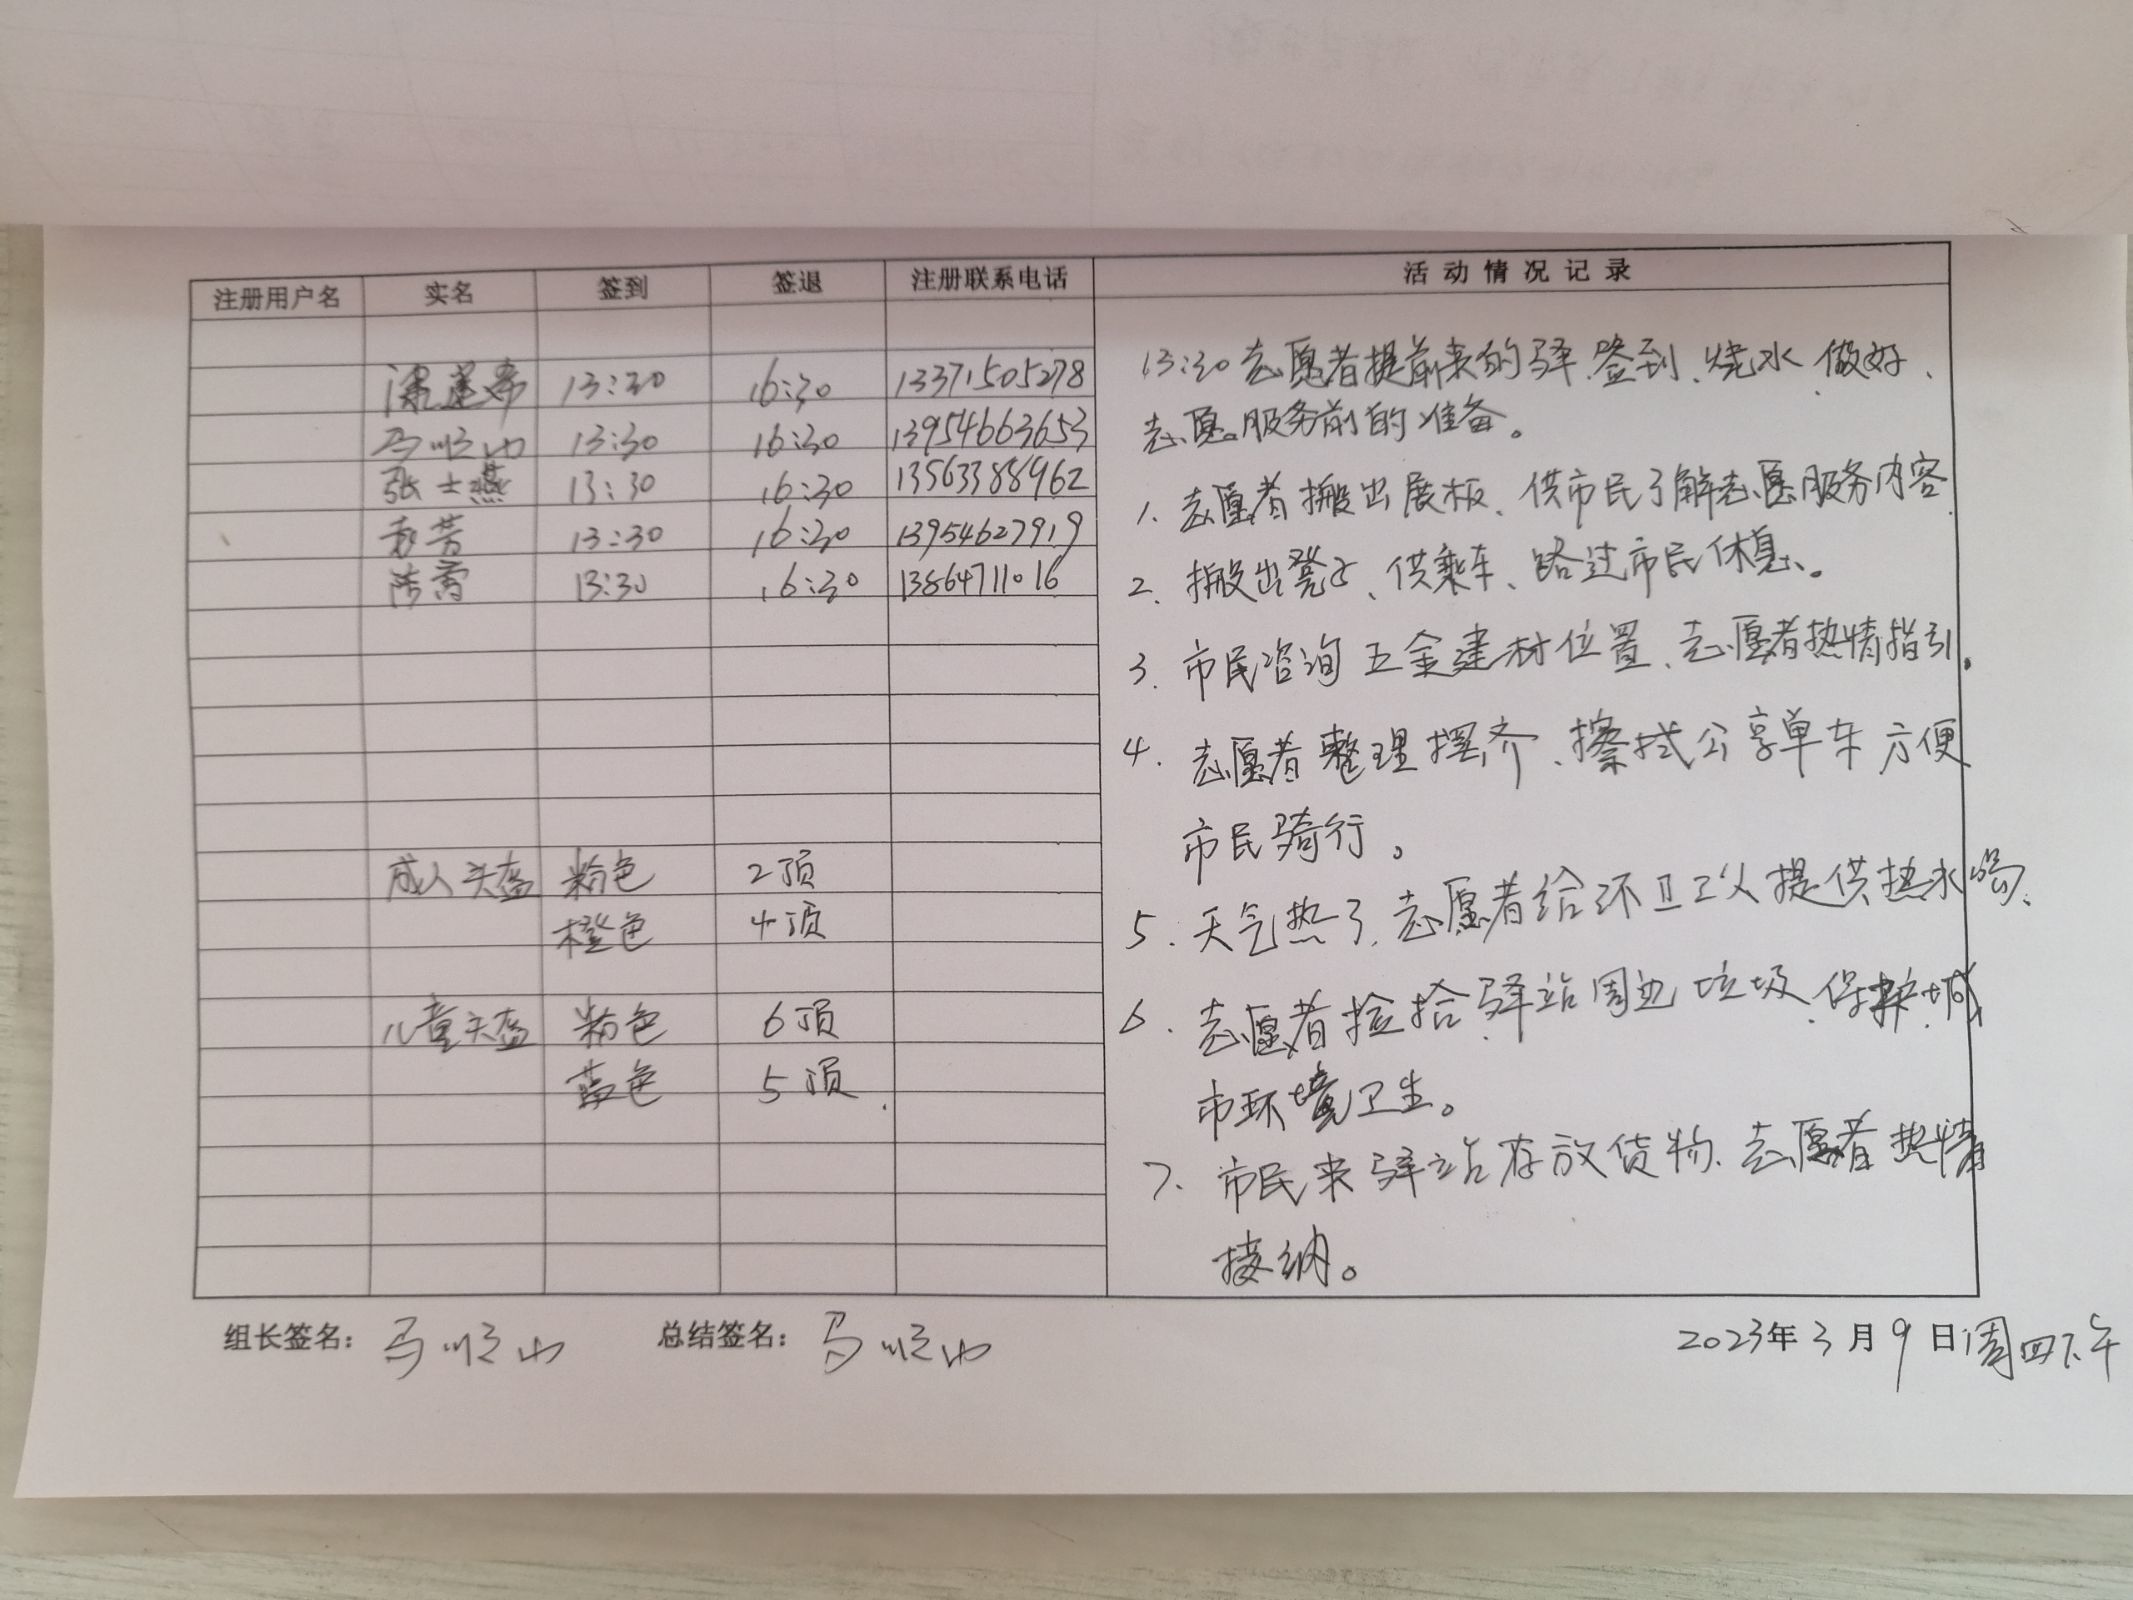 注册用户名 实名 签到 签退 注册联系电话 活动情况记录
13:30 16:30 13371505278
马顺山 13:30 16:30 13954663653
张士燕 13:30 16:30 13563388962
袁芳 13:30 16:30 13954627919
陈 13:30 16:30 13864711016
成人头盔 粉色 2顶
橙色 4顶
儿童头盔 粉色 6顶
蓝色 5顶
13:30志愿者提前来的驿、签到、烧水、做好、
志愿服务前的准备。
1、志愿者搬出展板、供市民了解志愿服务内容
2、搬出凳子、供乘车、路过市民休息、。
3、市民咨询五金建材位置、志愿者热情指引。
4、志愿者整理摆齐、擦拭公享单车方便
市民骑行。
5、天气热了、志愿者给环卫工人提供热水喝、
6、志愿者捡拾驿站周边垃圾、保护城
市环境卫生。
7、市民来驿站存放货物、志愿者热情
接纳。
组长签名：马顺山 总结签名：马顺山 2023年3月9日周四下午